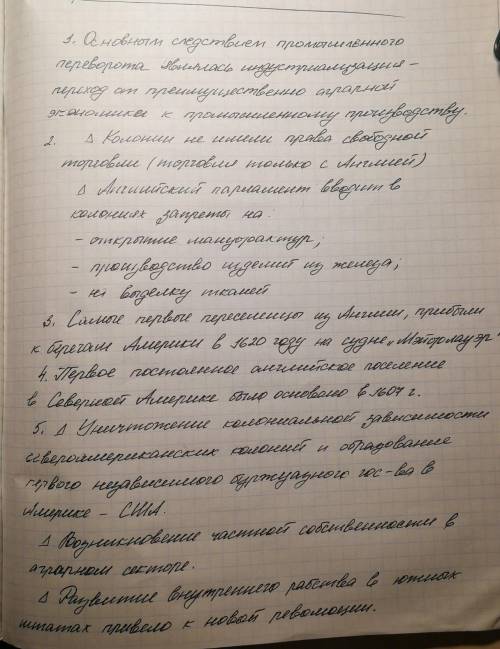 1. Основным следствием промышленного
переворота являлась индустриализация –
переход от преимущественно аграрной
экономики к промышленному производству.
2. Δ Колонии не имели права свободной
торговли (торговля только с Англией)
Δ Английский парламент вводит в
колониях запреты на:
- открытие мануфактур;
- производство изделий из железа;
- на выделку тканей
3. Самые первые переселенцы из Англии, прибыли
к берегам Америки в 1620 году на судне „Мэйфлауэр"
4. Первое постоянное английское поселение
в Северной Америке было основано в 1607 г.
5. Δ Уничтожение колониальной зависимости
североамериканских колоний и образование
первого независимого буржуазного гос-ва в
Америке – США.
Δ Возникновение частной собственности в
аграрном секторе.
Δ Развитие внутреннего рабства в южных
штатах привело к новой революции.